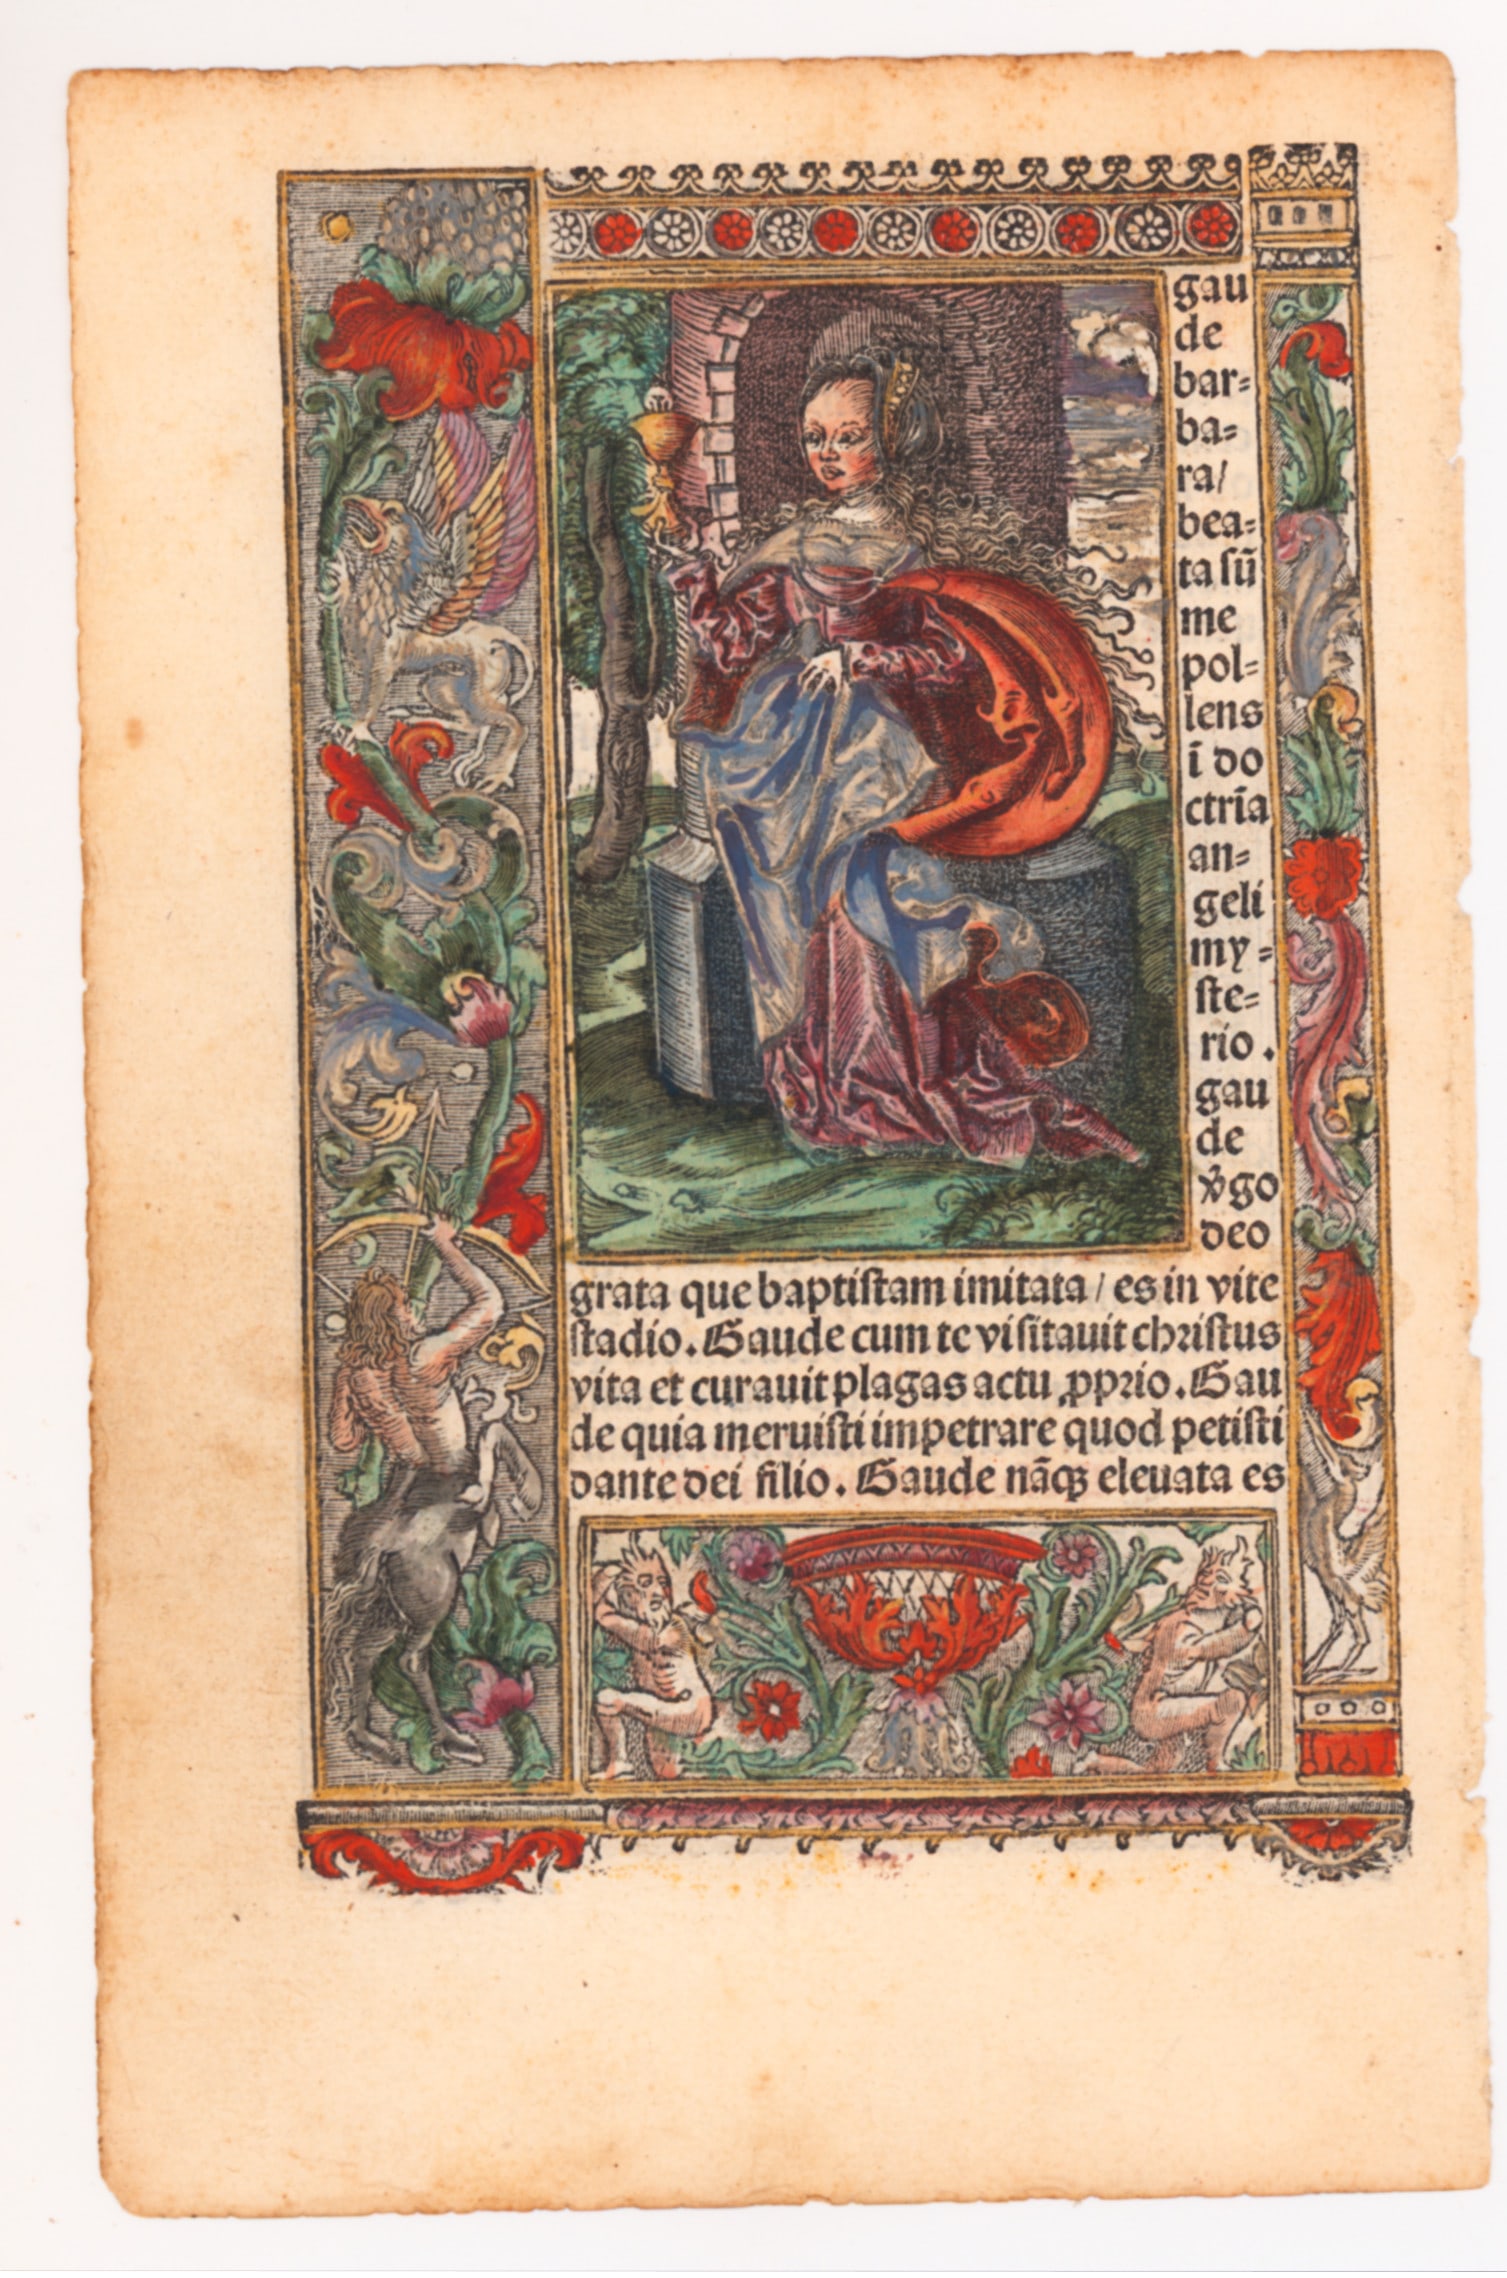 gau
de
bar=
ba=
ra/
bea=
ta sū
me
pol=
lens
ī do
ctrīa
an=
geli
my=
ste=
rio.
gau
de
v̄go
deo
grata que baptistam imitata / es in vite
stadio. Gaude cum te visitauit christus
vita et curauit plagas actu ꝓprio. Gau
de quia meruisti impetrare quod petisti
dante dei filio. Gaude nāqꝫ eleuata es